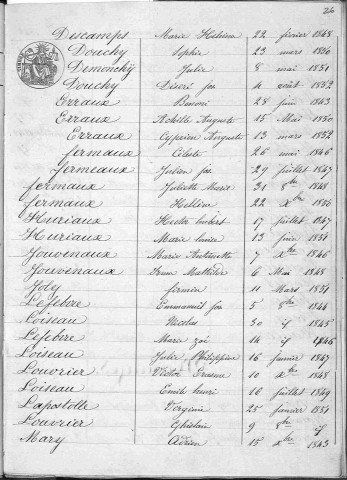 26
Descamps Marie Héléna 22 février 1848
Douchy Sophie 23 mars 1850
Demonchy Julie 8 mai 1851
Douchy Désiré jos 4 août 1852
Erraux Benoni 28 juin 1843
Erraux Achille Auguste 15 Mai 1850
Erraux Cyprien Auguste 13 mars 1852
fermaux Céleste 26 mai 1846
fermeaux Julien jos 29 juillet 1847
fermaux Juliette Marie 31 8bre 1848
fermaux 22 Xbre 1850
Huriaux Hector hubert 17 juillet 1847
Huriaux Marie louise 13 juin 1851
Jouvenaux Marie Antoinette 7 Xbre 1846
Jouvenaux Mathilde 6 Mai 1848
Joly firmin 11 Mars 1851
Lefebvre Emmanuel jos 5 8bre 1844
Loiseau Nicolas 30 if 1845
Lefebvre Marie zoé 14 if 1846
Loiseau Julie Philippine 16 janvier 1847
Louvrier Victor Erasme 10 Xbre 1848
Loiseau Emile henri 16 juillet 1849
Lapostolle Virginie 25 janvier 1851
Louvrier Ghislain 9 8bre if
Mary Adrien 15 Xbre 1843